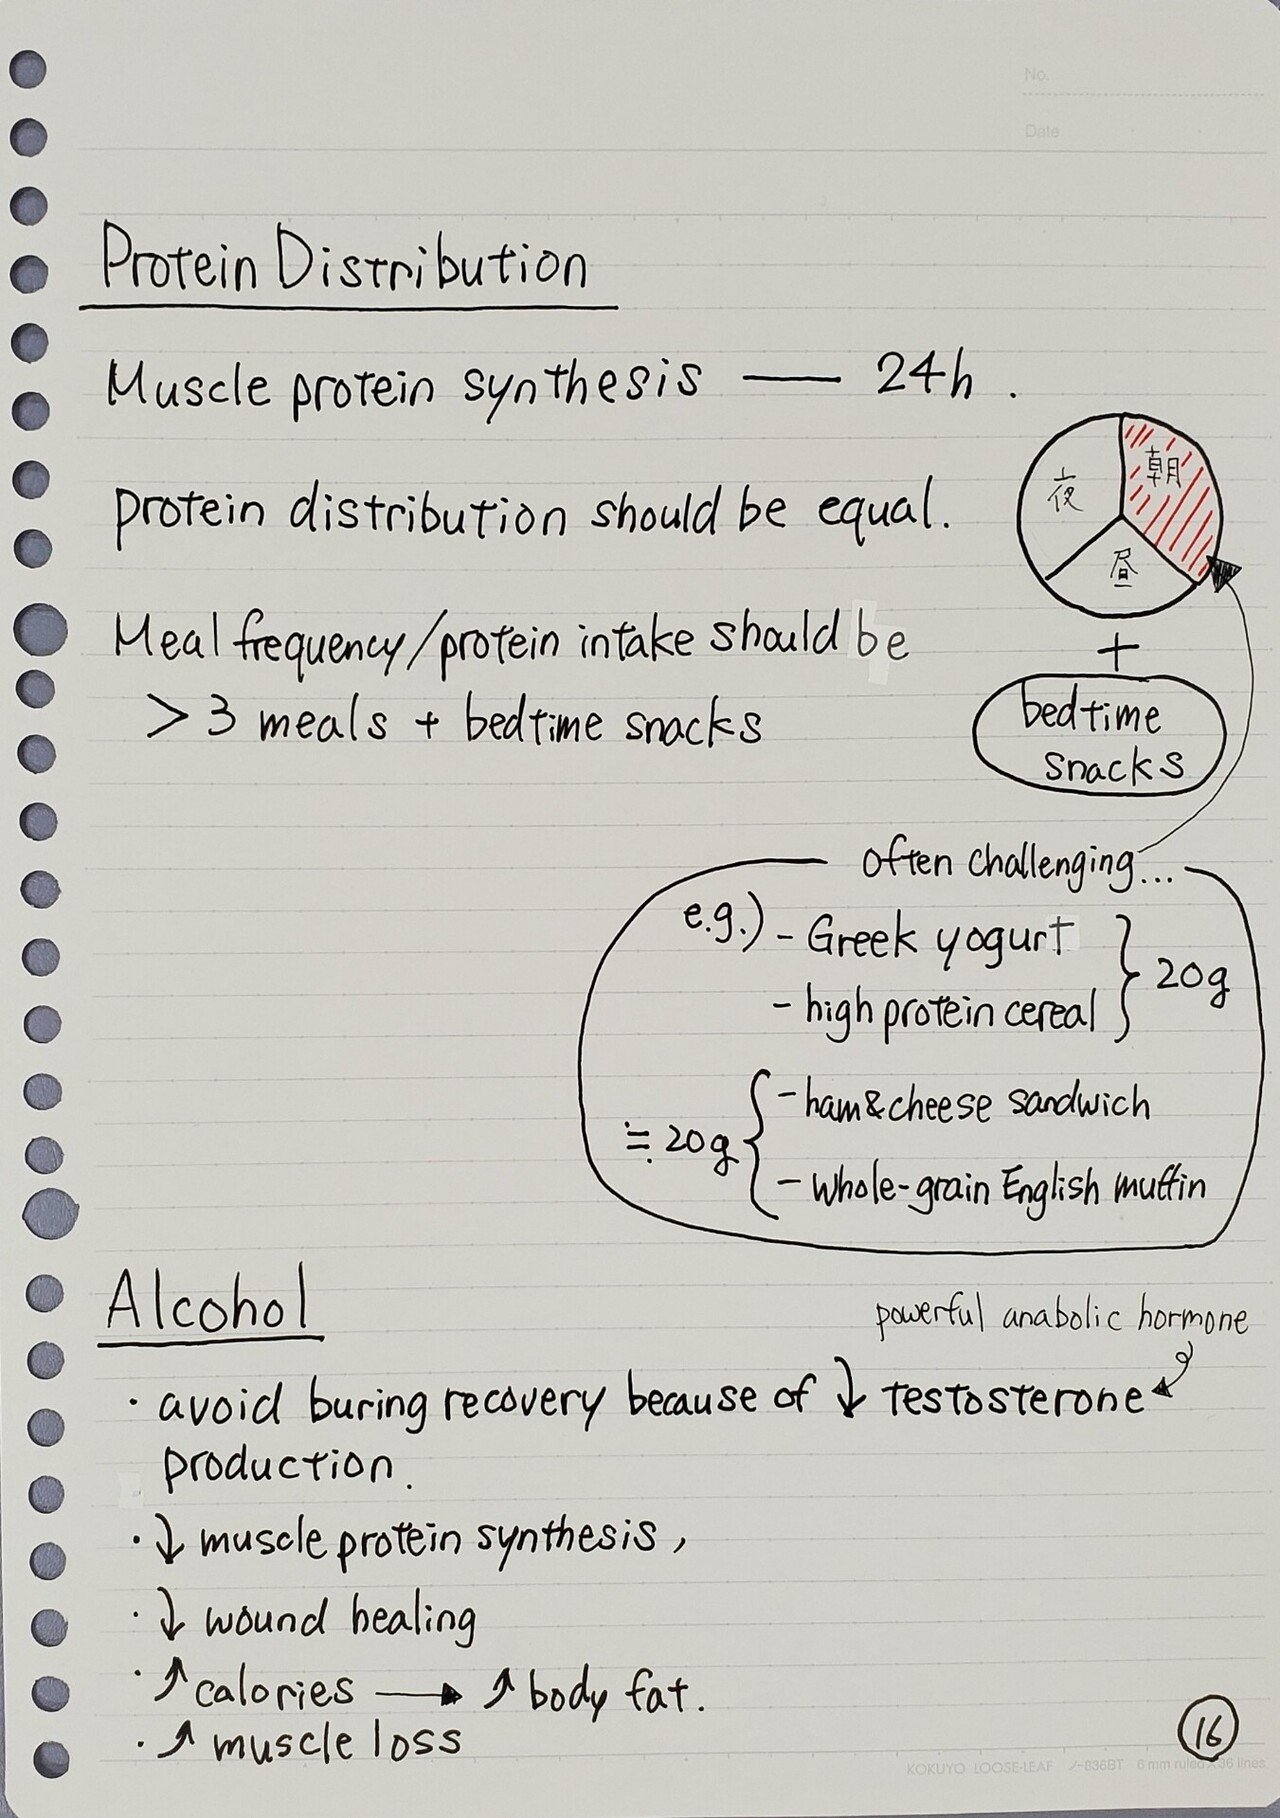 No.
Date
Protein Distribution
Muscle protein synthesis — 24h.
protein distribution should be equal.
夜
朝
昼
+
bedtime
snacks
Meal frequency/protein intake should be
> 3 meals + bedtime snacks
often challenging...
e.g.) - Greek yogurt
- high protein cereal } 20g
≒ 20g { - ham&cheese sandwich
- whole-grain English muffin
Alcohol
powerful anabolic hormone
· avoid buring recovery because of ↓ testosterone
production.
· ↓ muscle protein synthesis,
· ↓ wound healing
· ↑ calories → ↑ body fat.
· ↑ muscle loss
16
KOKUYO LOOSE-LEAF ノ-836BT 6 mm ruled × 36 lines